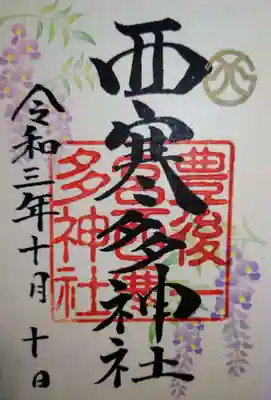 西寒多神社
豊後一
宮西寒
多神社
令和三年十月 十日